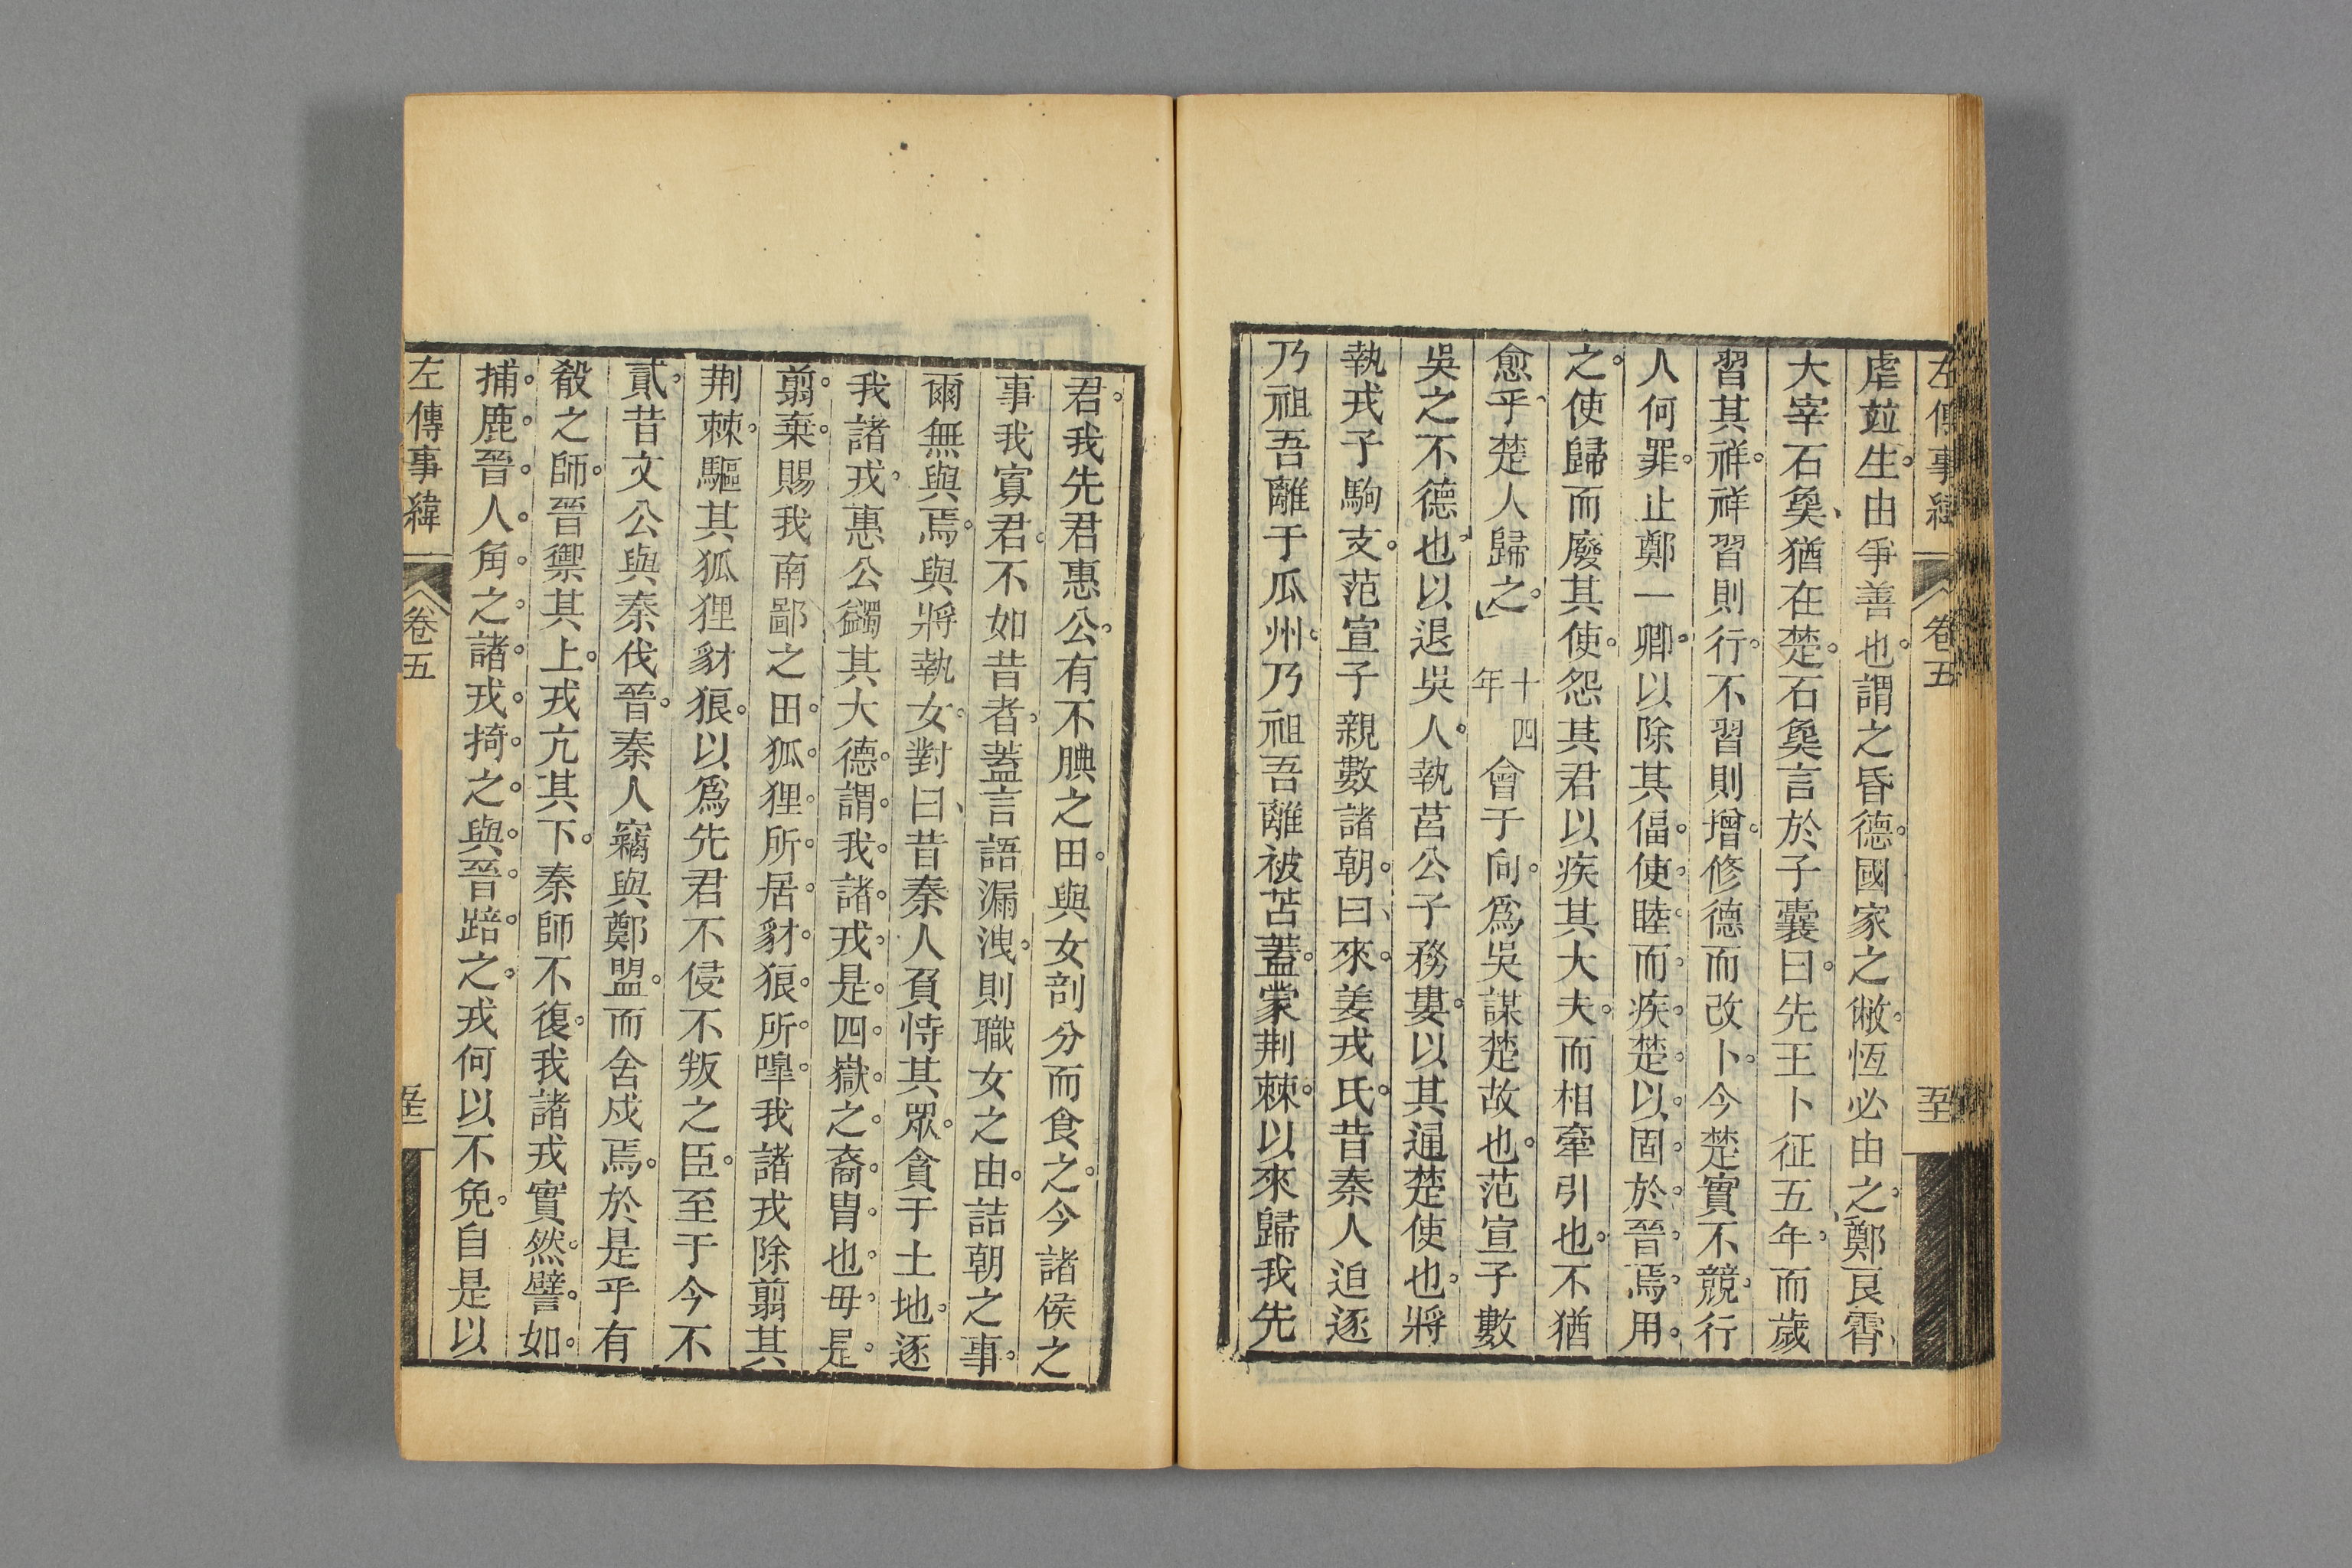 左傳事緯 卷五 至
虐竝生由爭善也謂之昏德國家之敝恆必由之鄭良霄
大宰石㚟猶在楚石㚟言於子囊曰先王卜征五年而歲
習其祥祥習則行不習則增修德而改卜今楚實不競行
人何罪止鄭一卿以除其偪使睦而疾楚以固於晉焉用
之使歸而廢其使怨其君以疾其大夫而相牽引也不猶
愈乎楚人歸之 十四年 會于向爲吳謀楚故也范宣子數
吳之不德也以退吳人執莒公子務婁以其通楚使也將
執戎子駒支范宣子親數諸朝曰來姜戎氏昔秦人迫逐
乃祖吾離于瓜州乃祖吾離被苫蓋蒙荆棘以來歸我先
君我先君惠公有不腆之田與女剖分而食之今諸侯之
事我寡君不如昔者蓋言語漏洩則職女之由詰朝之事
爾無與焉與將執女對曰昔秦人負恃其眾貪于土地逐
我諸戎惠公蠲其大德謂我諸戎是四嶽之裔胄也毋是
翦棄賜我南鄙之田狐狸所居豺狼所嘷我諸戎除翦其
荆棘驅其狐狸豺狼以爲先君不侵不叛之臣至于今不
貳昔文公與秦伐晉秦人竊與鄭盟而舍戍焉於是乎有
殽之師晉禦其上戎亢其下秦師不復我諸戎實然譬如
捕鹿晉人角之諸戎掎之與晉踣之戎何以不免自是以
左傳事緯 卷五